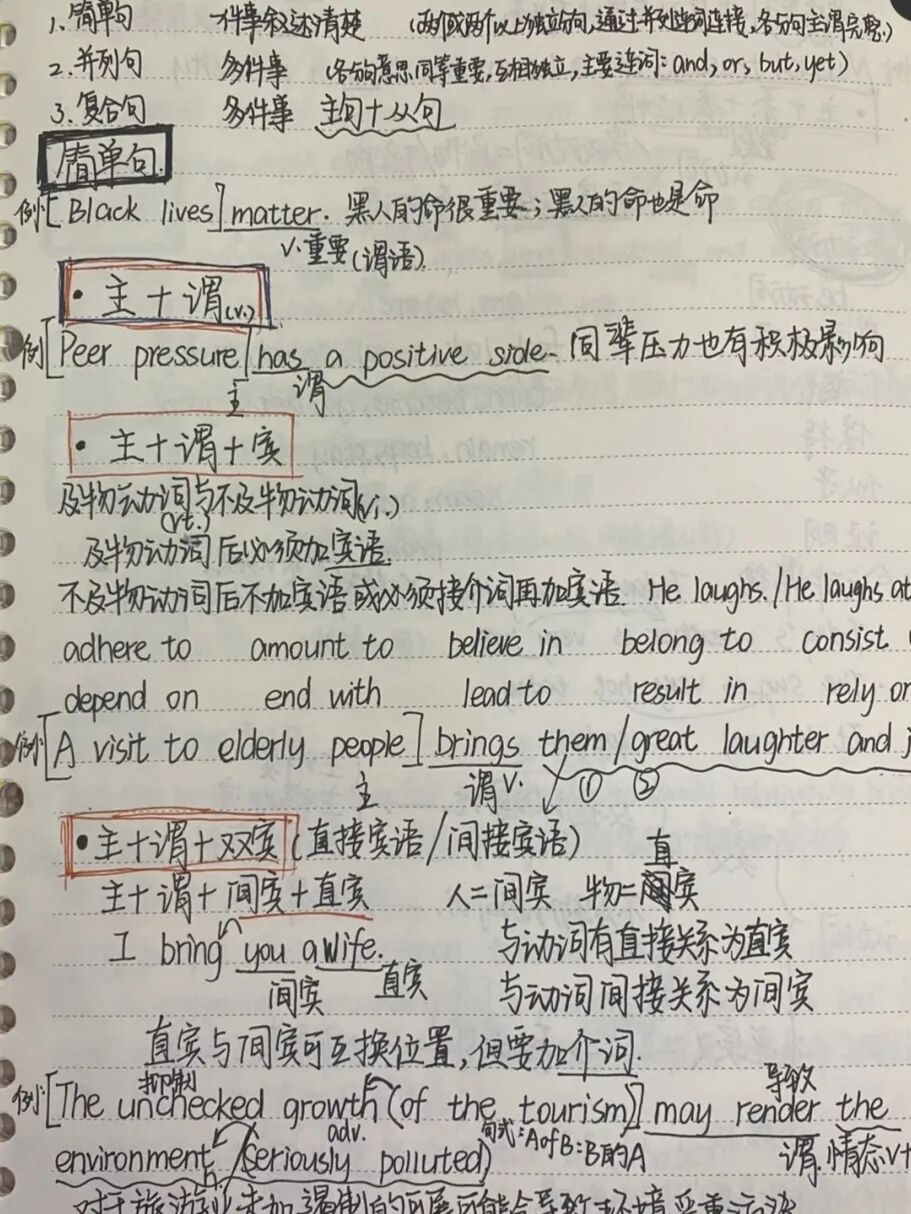 1. 简单句 一件事叙述清楚 (两个或两个以上独立句,通过并列连词连接,各分句主谓完整.)
2. 并列句 多件事 (各分句意思同等重要,互相独立,主要连词: and, or, but, yet)
3. 复合句 多件事 主句+从句
简单句.
例[Black lives] matter. 黑人的命很重要;黑人的命也是命
v.重要(谓语).
·主+谓(v.)
例[Peer pressure] has a positive side. 同辈压力也有积极影响
主 谓
·主+谓+宾
及物动词与不及物动词(vi.)
(vt.)
及物动词后必须加宾语.
不及物动词后不加宾语或必须接介词再加宾语. He laughs./He laughs at
adhere to amount to believe in belong to consist
depend on end with lead to result in rely on
例[A visit to elderly people] brings them/great laughter and j
主 谓v. ① ②
·主+谓+双宾(直接宾语/间接宾语)
直
主+谓+间宾+直宾 人=间宾 物=宾
I bring you a wife. 与动词有直接关系为直宾
间宾 直宾 与动词间接关系为间宾
直宾与间宾可互换位置,但要加介词.
抑制 导致
例[The unchecked growth (of the tourism)] may render the
adv. 句式:A of B:B的A 谓.情态v+
environment (seriously polluted)
对于旅游业未加遏制的可能会导致环境严重污染